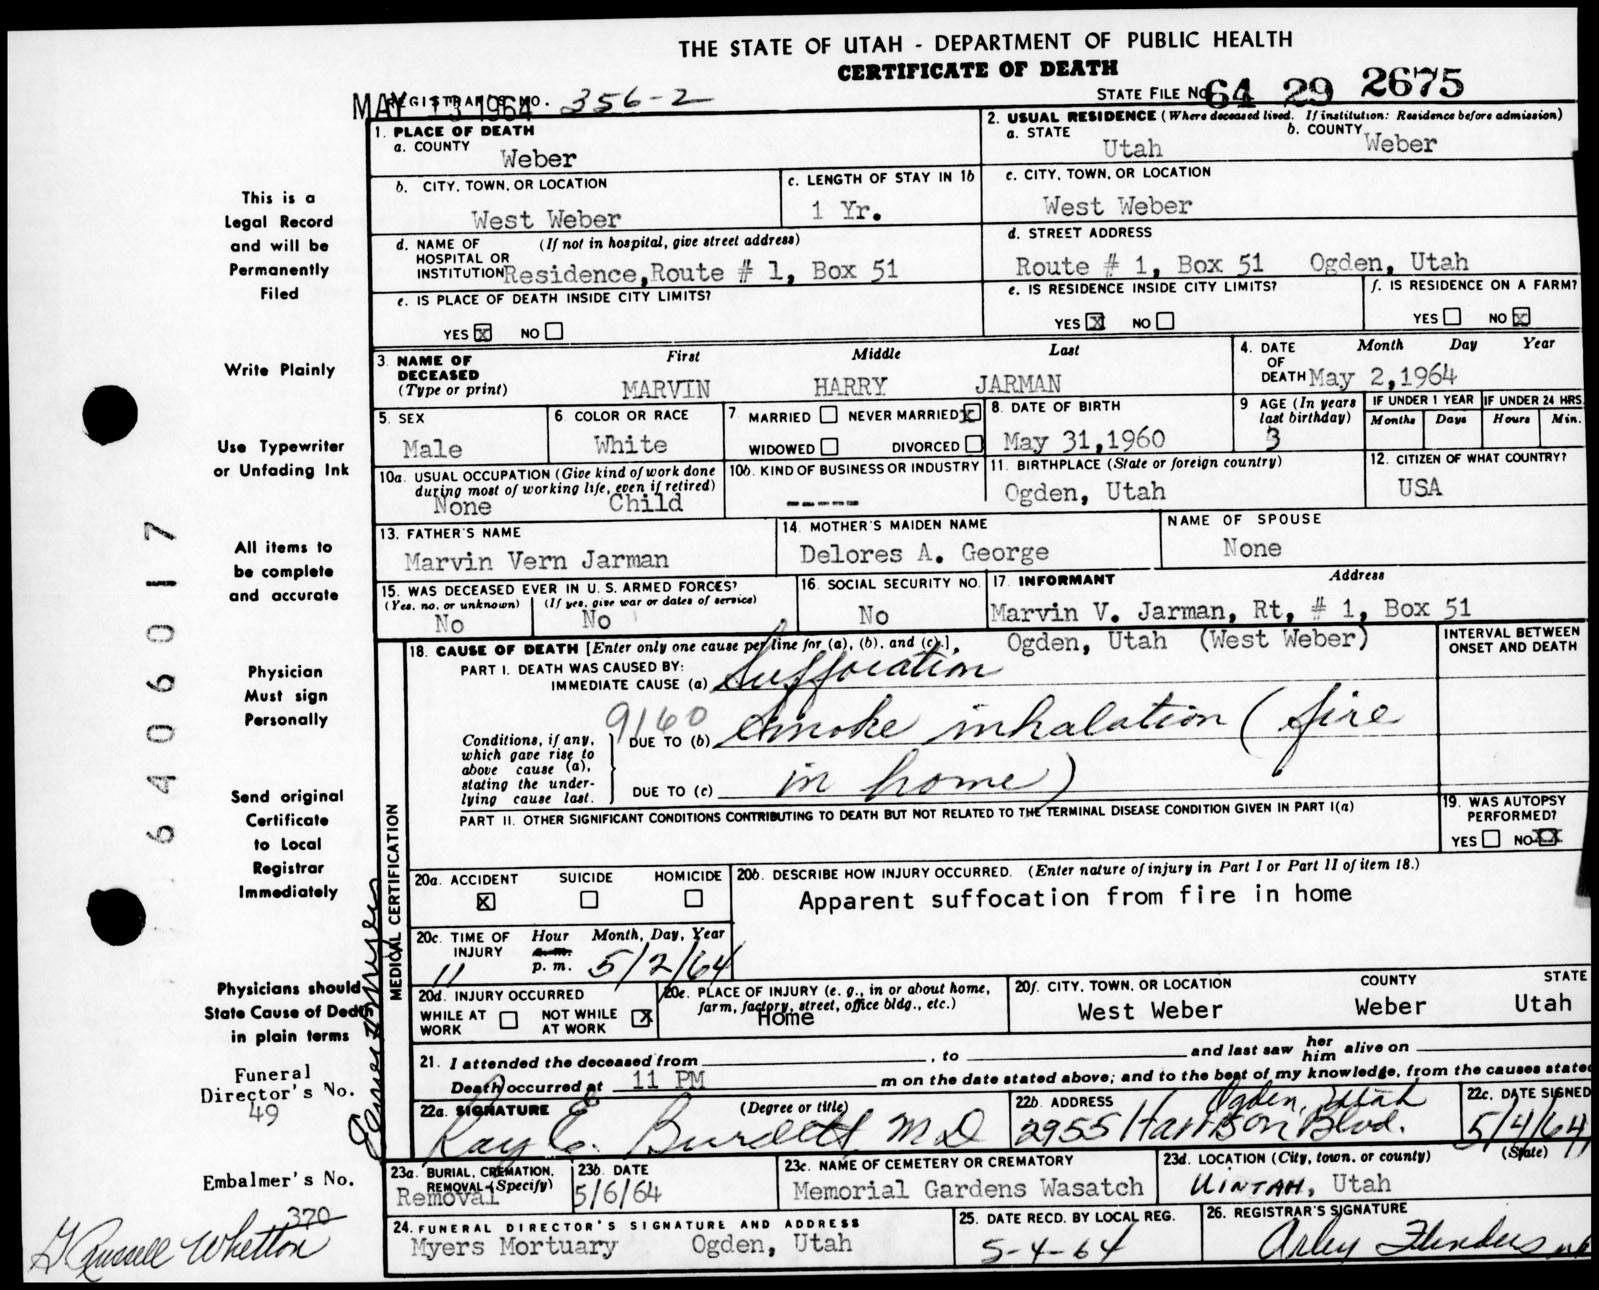 THE STATE OF UTAH - DEPARTMENT OF PUBLIC HEALTH
CERTIFICATE OF DEATH
MAY 13 1964
REGISTRAR'S NO. 356-2
STATE FILE NO. 64 29 2675
1. PLACE OF DEATH
a. COUNTY
Weber
2. USUAL RESIDENCE (Where deceased lived. If institution: Residence before admission)
a. STATE
Utah
b. COUNTY
Weber
b. CITY, TOWN, OR LOCATION
West Weber
c. LENGTH OF STAY IN 1b
1 Yr.
c. CITY, TOWN, OR LOCATION
West Weber
d. NAME OF HOSPITAL OR INSTITUTION (If not in hospital, give street address)
Residence, Route # 1, Box 51
d. STREET ADDRESS
Route # 1, Box 51 Ogden, Utah
e. IS PLACE OF DEATH INSIDE CITY LIMITS?
YES X NO
e. IS RESIDENCE INSIDE CITY LIMITS?
YES X NO
f. IS RESIDENCE ON A FARM?
YES NO X
3. NAME OF DECEASED (Type or print)
First Middle Last
MARVIN HARRY JARMAN
4. DATE OF DEATH
Month Day Year
May 2,1964
5. SEX
Male
6. COLOR OR RACE
White
7. MARRIED NEVER MARRIED X
WIDOWED DIVORCED
8. DATE OF BIRTH
May 31,1960
9. AGE (In years last birthday)
3
IF UNDER 1 YEAR
Months Days
IF UNDER 24 HRS.
Hours Min.
10a. USUAL OCCUPATION (Give kind of work done during most of working life, even if retired)
None Child
10b. KIND OF BUSINESS OR INDUSTRY
-----
11. BIRTHPLACE (State or foreign country)
Ogden, Utah
12. CITIZEN OF WHAT COUNTRY?
USA
13. FATHER'S NAME
Marvin Vern Jarman
14. MOTHER'S MAIDEN NAME
Delores A. George
NAME OF SPOUSE
None
15. WAS DECEASED EVER IN U.S. ARMED FORCES?
(Yes, no, or unknown) (If yes, give war or dates of service)
No No
16. SOCIAL SECURITY NO.
No
17. INFORMANT Address
Marvin V. Jarman, Rt, # 1, Box 51
Ogden, Utah (West Weber)
MEDICAL CERTIFICATION
18. CAUSE OF DEATH [Enter only one cause per line for (a), (b), and (c).]
INTERVAL BETWEEN ONSET AND DEATH
PART I. DEATH WAS CAUSED BY:
IMMEDIATE CAUSE (a) Suffocation
9160
Conditions, if any, which gave rise to above cause (a), stating the underlying cause last.
DUE TO (b) smoke inhalation (fire
DUE TO (c) in home)
PART II. OTHER SIGNIFICANT CONDITIONS CONTRIBUTING TO DEATH BUT NOT RELATED TO THE TERMINAL DISEASE CONDITION GIVEN IN PART I(a)
19. WAS AUTOPSY PERFORMED?
YES NO X
20a. ACCIDENT SUICIDE HOMICIDE
X
20b. DESCRIBE HOW INJURY OCCURRED. (Enter nature of injury in Part I or Part II of item 18.)
Apparent suffocation from fire in home
20c. TIME OF INJURY
Hour Month, Day, Year
a.m.
p.m.
11 5/2/64
20d. INJURY OCCURRED
WHILE AT WORK NOT WHILE AT WORK X
20e. PLACE OF INJURY (e. g., in or about home, farm, factory, street, office bldg., etc.)
Home
20f. CITY, TOWN, OR LOCATION COUNTY STATE
West Weber Weber Utah
21. I attended the deceased from , to and last saw her him alive on
Death occurred at 11 PM m on the date stated above; and to the best of my knowledge, from the causes stated
22a. SIGNATURE (Degree or title)
Ray E. Burdett MD
22b. ADDRESS
Ogden, Utah
2955 Harrison Blvd.
22c. DATE SIGNED
5/4/64
23a. BURIAL, CREMATION, REMOVAL (Specify)
Removal
23b. DATE
5/6/64
23c. NAME OF CEMETERY OR CREMATORY
Memorial Gardens Wasatch
23d. LOCATION (City, town, or county) (State)
UINTAH, Utah
24. FUNERAL DIRECTOR'S SIGNATURE AND ADDRESS
Myers Mortuary Ogden, Utah
25. DATE RECD. BY LOCAL REG.
5-4-64
26. REGISTRAR'S SIGNATURE
Arley Flinders
This is a
Legal Record
and will be
Permanently
Filed
Write Plainly
Use Typewriter
or Unfading Ink
All items to
be complete
and accurate
Physician
Must sign
Personally
Send original
Certificate
to Local
Registrar
Immediately
Physicians should
State Cause of Death
in plain terms
Funeral
Director's No.
49
Embalmer's No.
370
G Russell Whetton
6406017